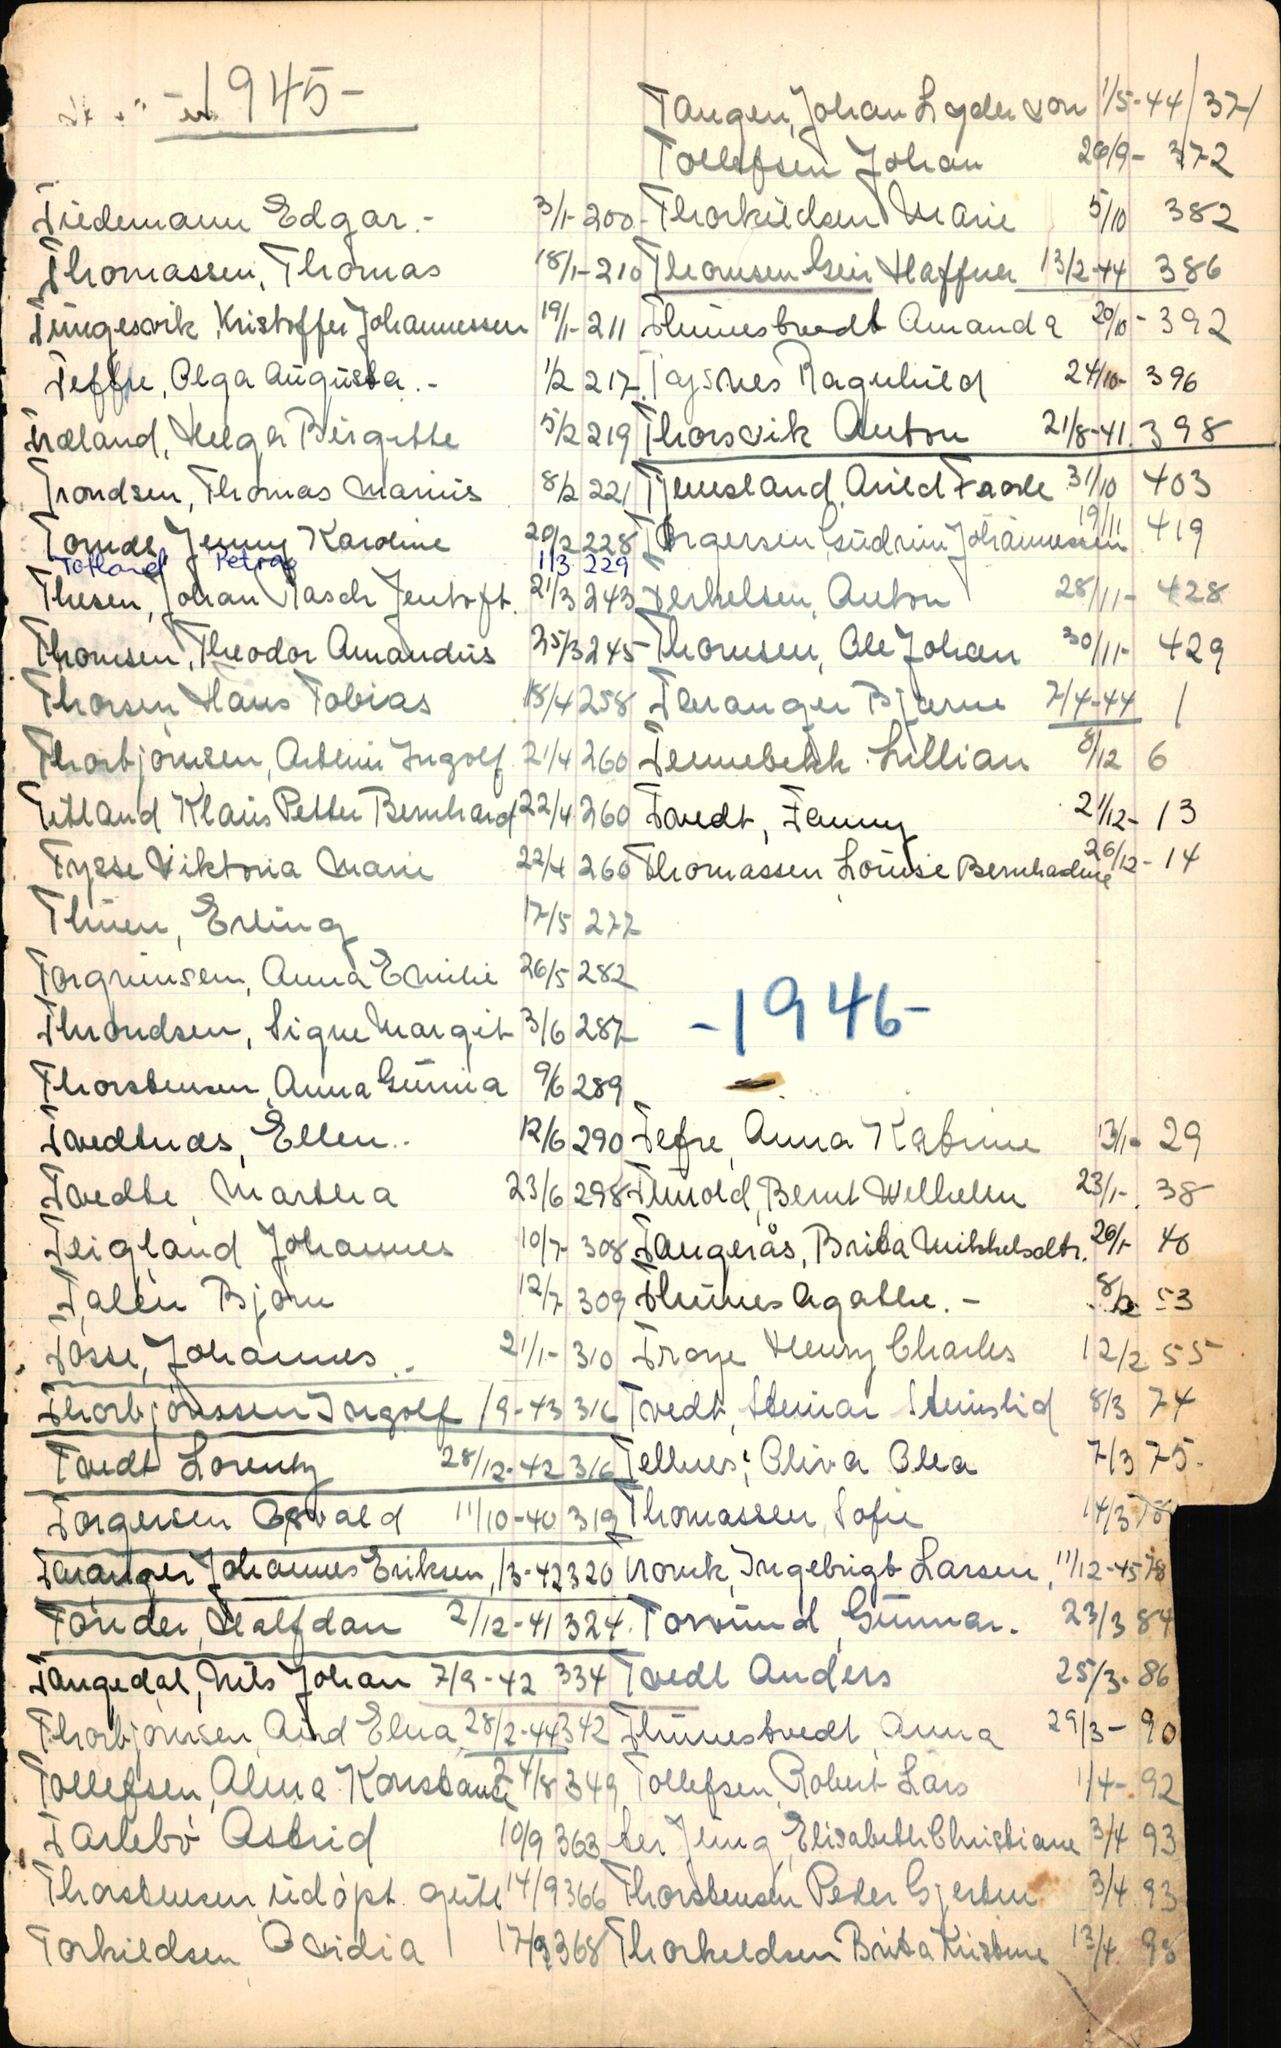 -1945-
Tiedemann Edgar.- 3/1-200-
Thomassen, Thomas 18/1-210
Tungesvik, Kristoffer Johannessen 19/1-211
Teffre, Olga Augusta.- 1/2 217.
Træland, Helga Birgitte 5/2 219
Trondsen, Thomas Marius 8/2 221
Jenny Karoline 20/2 228
Totland Petra 1/3 229
Thesen, Johan Rasch Jentoft. 21/3 243
Thomsen, Theodor Amandus 25/3 245
Thorsen, Hans Tobias 18/4 258
Thorbjørnsen, Ingolf 21/4 260
Tetland Klaus Petter Bernhard 22/4 260
Tysse Viktoria Marie 22/4 260
Thuen, Erling 17/5 277
Torgrimsen, Anna Emilie 26/5 282
Throndsen, Signe Margit 3/6 287
Thorstensen, Anna Gunnia 9/6 289
Tvedtnes, Ellen.. 12/6 290
Tvedte Martha 23/6 298
Teigland Johannes 10/7- 308
Talén Bjørn 12/7 309
Tosse, Johannes.. 21/1- 310
Thorbjørnssen Ingolf /9-43 316
Tvedt Lorentz 28/12-42 316
Torgersen Osvald 11/10-40 319
Taranger Johannes Eriksen, /3-42 320
Tønder, Halfdan 2/12-41 324.
Tangedal, Nils Johan 7/9-42 334
Thorbjørnsen, Aud Elna, 28/2-44 342
Tollefsen, Alma Konstanse 24/8 349
Tarlebø Astrid 10/9 363
Thorstensen, udøpt gutt 14/9 366
Torkildsen, Ovidia 17/9 368
Tangen, Johan Lyder von 1/5-44/371
Tollefsen Johan 26/9- 372
Thorkildsen Marie 5/10 382
Thomsen Geir Haffner 13/2-44 386
Thunestvedt Amanda 20/10- 392
Ragnhild 24/10- 396
Thorsvik Anton 21/8-41. 398
Tjemsland, Arild Frode 31/10 403
Torgersen Gudrun Johannessen 19/11 419
Terkelsen, Anton 28/11- 428
Thomsen, Ole Johan 30/11- 429
Teranger Bjarne 7/4-44 1
Tennebekk Lillian 8/12 6
Tvedt, Fanny 21/12- 13
Thomassen Louise Bernhadine 26/12- 14
-1946-
Tefre, Anna Katrine 13/1- 29
Thuold, Bernt Wilhelm 23/1- 38
Tangerås, Brita Mikkelsdtr. 26/1- 40
Thunes Agathe.- 8/2 53
Troye Henry Charles 12/2 55
Tvedt, Steinar Steinslid 8/3 74
Tellnes, Oliva Olea 7/3 75.
Thomassen, Sofie 14/3 78
Ingebrigt Larsen, 11/12-45 78
Torsund, Gunnar. 23/3 84
Tvedt Anders 25/3- 86
Thunestvedt, Anna 29/3- 90
Tollefsen, Robert Lars 1/4- 92
ter Jung, Elisabeth Christiane 3/4 93
Thorstensen Peder Gjertin 3/4 93
Thorkeldsen Brita Kristine 13/4 98